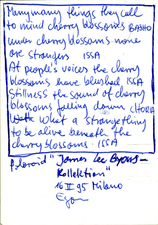 Many many things they call
to mind cherry blossoms BASHO
Under cherry blossoms none
are strangers ISSA
At people's voices the cherry
blossoms have blushed ISSA
Stillness the sound of cherry
blossoms falling down CHORA
What a strange thing
to be alive beneath the
cherry blossoms. ISSA
Polaroid "James Lee Byars-
Kollektion"
16 II 95 Milano